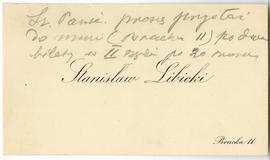 Sz. Panie. proszę przysłać
do mnie (Bracka 11) po dwa
bilety w II rzędzie po 20 marek
Stanisław Libicki
Bracka 11